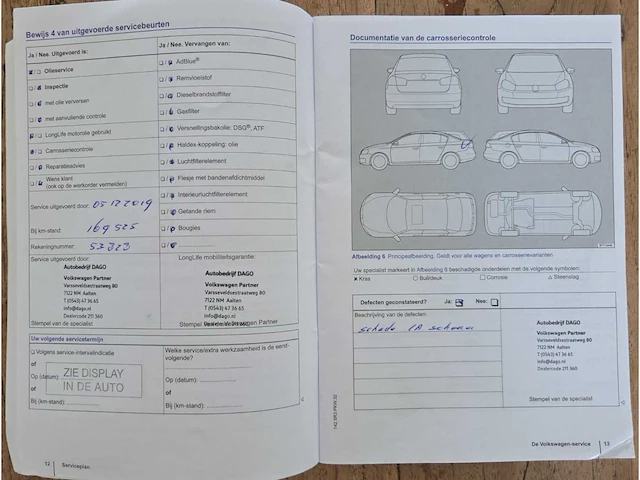 Bewijs 4 van uitgevoerde servicebeurten
Ja / Nee. Uitgevoerd is:
Olieservice
Inspectie
met olie verversen
met aanvullende controle
LongLife motorolie gebruikt
Carrosseriecontrole
Reparatieadvies
Wens klant
(ook op de werkorder vermelden)
Ja / Nee. Vervangen van:
AdBlue®
Remvloeistof
Dieselbrandstoffilter
Gasfilter
Versnellingsbakolie: DSG®, ATF
Haldex-koppeling: olie
Luchtfilterelement
Flesje met bandenafdichtmiddel
Interieurluchtfilterelement
Getande riem
Bougies
Service uitgevoerd door: 05 12 2019
Bij km-stand: 169 525
Rekeningnummer: 53323
Service uitgevoerd door:
Autobedrijf DAGO
Volkswagen Partner
Varsseveldsestraatweg 80
7122 NM Aalten
T (0543) 47 36 65
info@dago.nl
Dealercode 211 360
Stempel van de specialist
LongLife mobiliteitsgarantie:
Autobedrijf DAGO
Volkswagen Partner
Varsseveldsestraatweg 80
7122 NM Aalten
T (0543) 47 36 65
info@dago.nl
Stempel Volkswagen Partner
Uw volgende servicetermijn
Volgens service-intervalindicatie
of
Op (datum):
of
Bij (km-stand):
ZIE DISPLAY
IN DE AUTO
Welke service/extra werkzaamheid is de eerst-
volgende?
Op (datum):
of
Bij (km-stand):
12 Serviceplan
Documentatie van de carrosseriecontrole
Afbeelding 6 Principeafbeelding. Geldt voor alle wagens en carrosserievarianten
Uw specialist markeert in Afbeelding 6 beschadigde onderdelen met de volgende symbolen:
× Kras
□ Buil/deuk
○ Corrosie
△ Steenslag
Defecten geconstateerd? Ja: Nee:
Beschrijving van de defecten:
schade RA scherm
Autobedrijf DAGO
Volkswagen Partner
Varsseveldsestraatweg 80
7122 NM Aalten
T (0543) 47 36 65
info@dago.nl
Dealercode 211 360
Stempel van de specialist
De Volkswagen-service 13